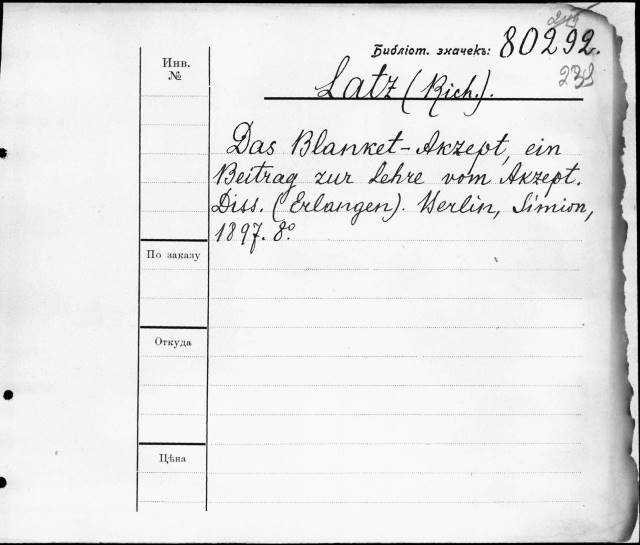 Библіот. значекъ: 80292.
Инв.
№
Latz (Rich.).
Das Blanket-Akzept, ein
Beitrag zur Lehre vom Akzept.
Diss. (Erlangen). Berlin, Simion,
1897. 8º.
По заказу
Откуда
Цѣна